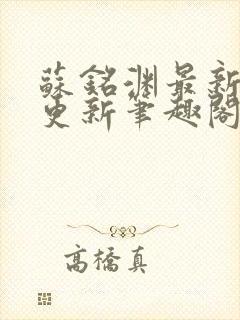 蘇銘淵最新
更新筆趣閣
高橋真